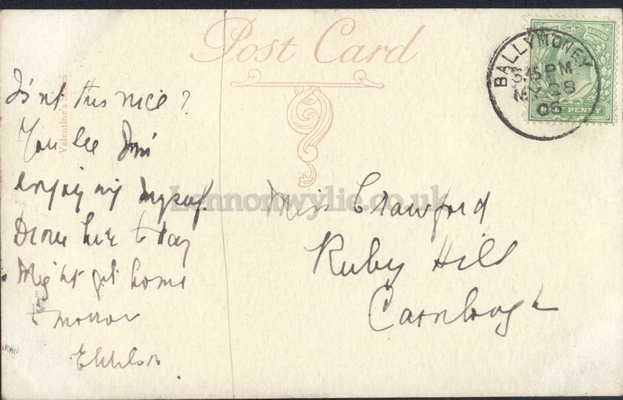 Post Card
BALLYMONEY
6.45 PM
MY 28
06
PENNY
Valentine's
Isn't this nice?
You see I'm
enjoying myself.
Drove here to day
Might get home
to morrow
Miss Crawford
Ruby Hill
Carnlough
Lennonwylie.co.uk